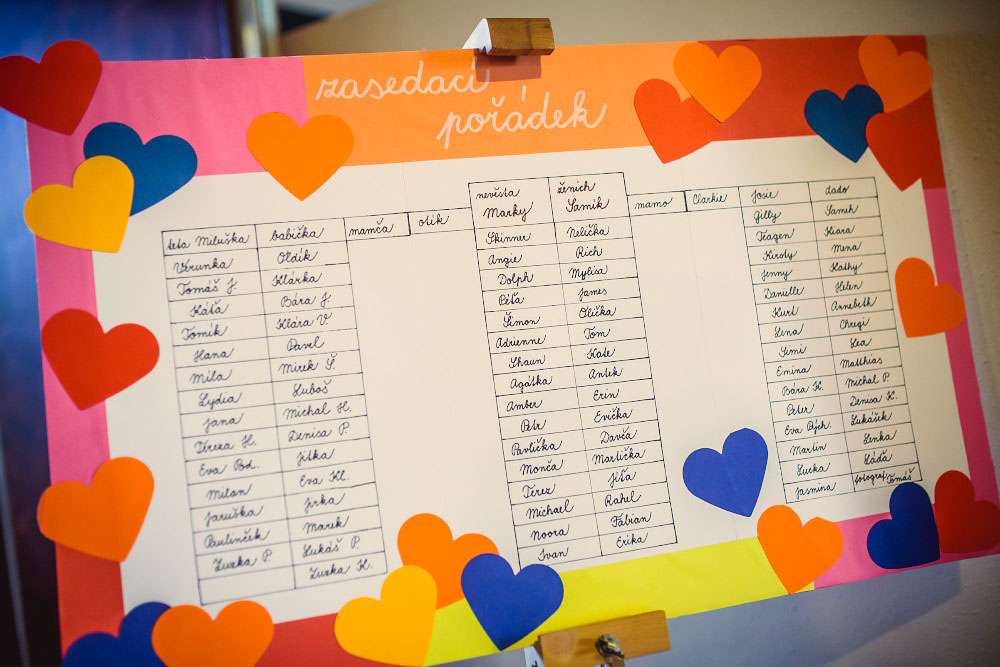 zasedací
pořádek
teta Miluška babička mamča otík nevěsta ženich mamo Clarkie Josie dado
Marky Samik
Verunka Oldík
Tomáš J. Klárka
Káťa Bára J.
Tomík Klára V.
Hana Pavel
Míla Mirek Š.
Lydia Luboš
Jana Michal H.
Tereza H. Denisa P.
Eva Pod. Jitka
Milan Eva Kl.
Jaruška Jirka
Paulínček Marek
Zuzka P. Lukáš P.
Zuzka K.
Skinner Nelička
Angie Rich
Dolph Mylisa
Péťa James
Šimon Olička
Adrienne Tom
Shaun Kate
Agátka Antek
Amber Erin
Petr Evička
Pavlička Davča
Monča Martička
Terez Jíťa
Michael Rahel
Noora Fábian
Ivan Erika
Gilly Sameh
Teagen Kiara
Kirsty Mena
Jenny Kathy
Danielle Helen
Kurt Annebeth
Lena Chregi
Simi Lea
Emina Matthias
Bára K. Michal P.
Peter Denisa K.
Eva Rých. Lukášik
Martin Lenka
Lucka Láďa
Jasmina fotograf Tomáš